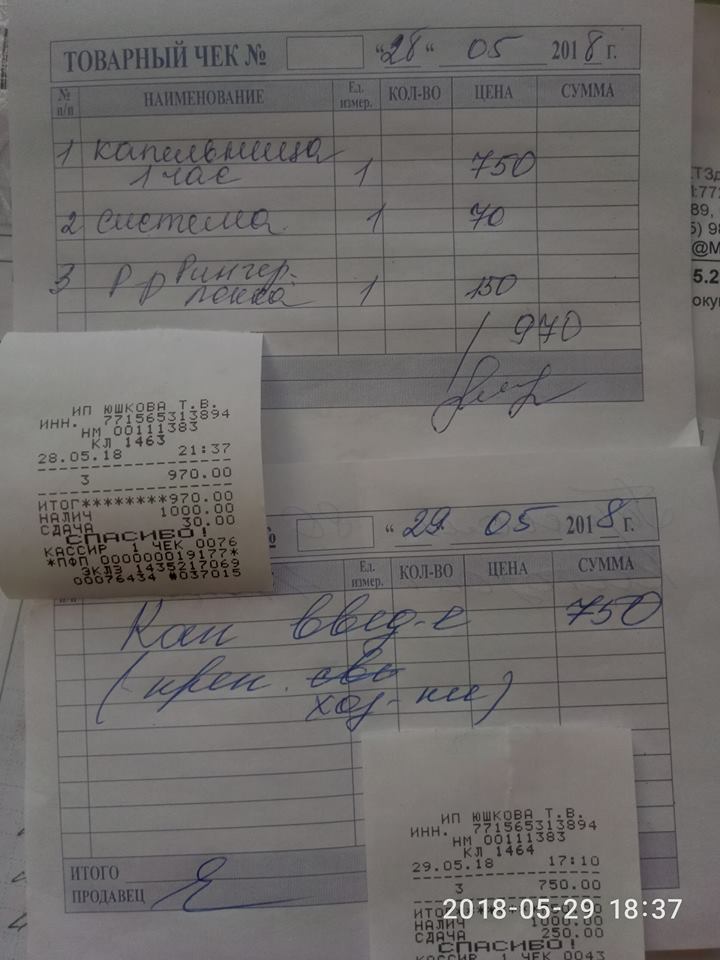 ТОВАРНЫЙ ЧЕК № "28" 05 2018 г.
№ п/п НАИМЕНОВАНИЕ Ед. измер. КОЛ-ВО ЦЕНА СУММА
1 капельница
1 час 1 750
2 система 1 70
3 Р р Рингер-
локка 1 150
970
ИП ЮШКОВА Т.В.
ИНН. 771565313894
НМ 00111383
КЛ 1463
28.05.18 21:37
3 970.00
ИТОГ********970.00
НАЛИЧ 1000.00
СДАЧА 30.00
СПАСИБО!
КАССИР 1 ЧЕК 0076
*ПФП 000000019177*
ЭКЛЗ 1435217069
00076434 #037015
"29 05 2018 г.
п/п Ед. измер. КОЛ-ВО ЦЕНА СУММА
Кап введ-е 750
(преп.
хоз-на)
ИТОГО
ПРОДАВЕЦ
ИП ЮШКОВА Т.В.
ИНН. 771565313894
НМ 00111383
КЛ 1464
29.05.18 17:10
3 750.00
ИТОГ
НАЛИЧ 1000.00
СДАЧА 250.00
СПАСИБО!
КАССИР 1 ЧЕК 0043
2018-05-29 18:37
ТЗд
89,
@M
5.2
оку